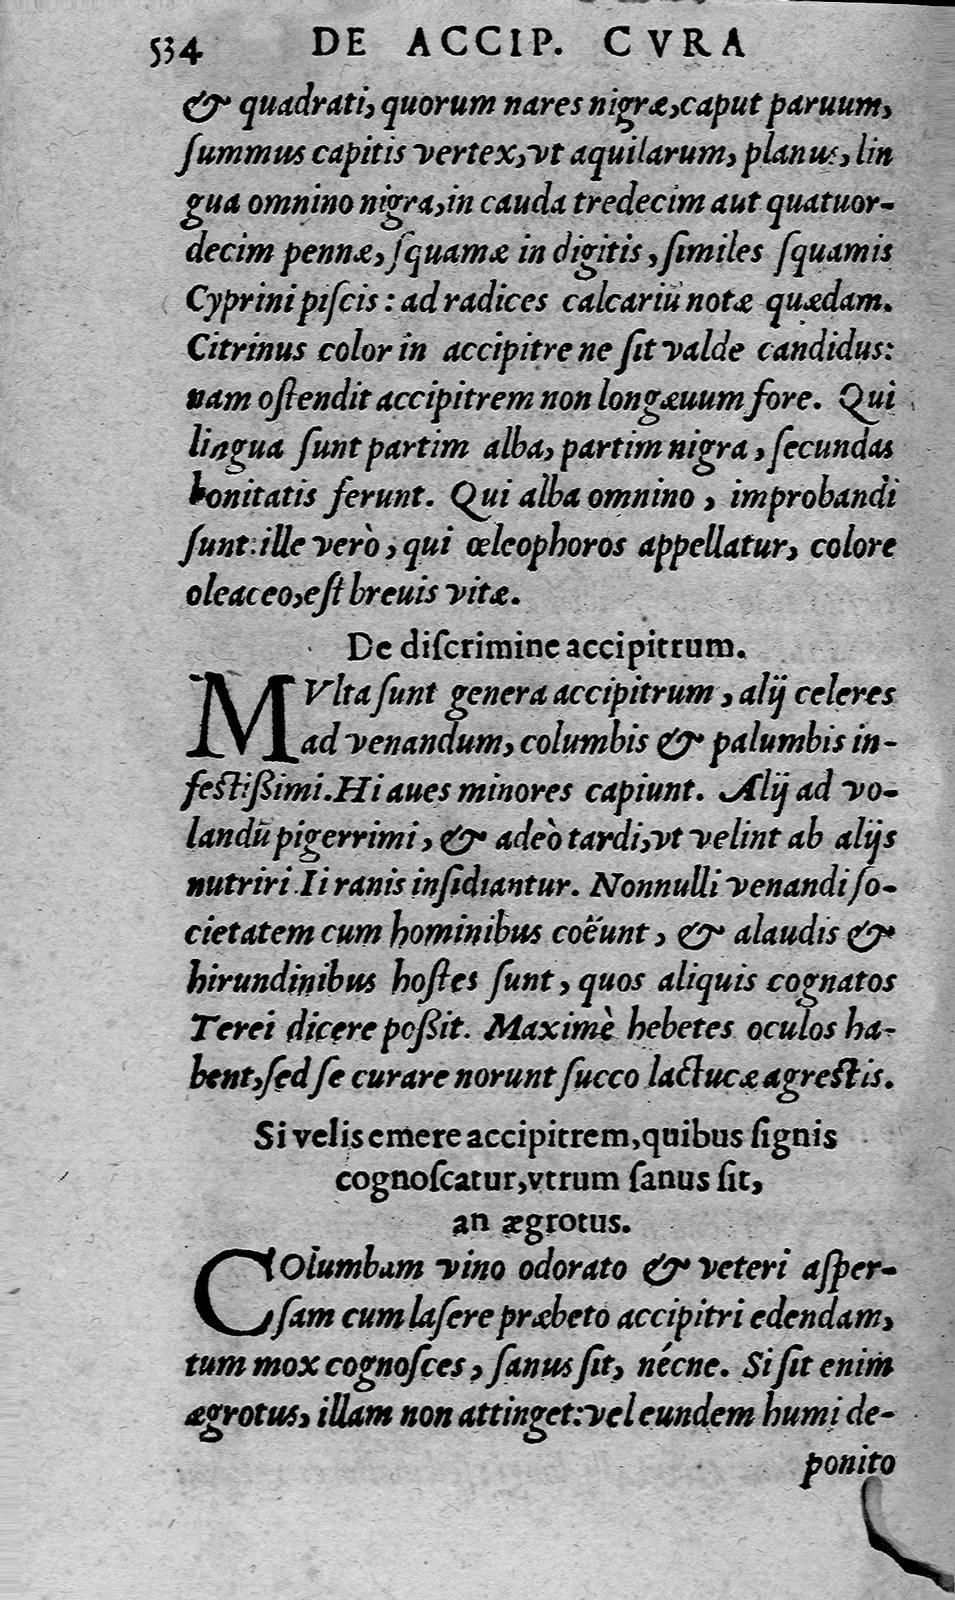 534 DE ACCIP. CVRA
& quadrati, quorum nares nigræ, caput paruum,
ſummus capitis vertex, vt aquilarum, planus, lin
gua omnino nigra, in cauda tredecim aut quatuor-
decim pennæ, ſquamæ in digitis, ſimiles ſquamis
Cyprini piſcis: ad radices calcariū notæ quædam.
Citrinus color in accipitre ne ſit valde candidus:
nam oſtendit accipitrem non longæuum fore. Qui
lingua ſunt partim alba, partim nigra, ſecundas
bonitatis ferunt. Qui alba omnino, improbandi
ſunt: ille verò, qui œleophoros appellatur, colore
oleaceo, eſt breuis vitæ.
De diſcrimine accipitrum.
MVlta ſunt genera accipitrum, alij celeres
ad venandum, columbis & palumbis in-
feſtißimi. Hi aues minores capiunt. Alij ad vo-
landū pigerrimi, & adeò tardi, vt velint ab alijs
nutriri. Ii ranis inſidiantur. Nonnulli venandi ſo-
cietatem cum hominibus coëunt, & alaudis &
hirundinibus hoſtes ſunt, quos aliquis cognatos
Terei dicere poßit. Maximè hebetes oculos ha-
bent, ſed ſe curare norunt ſucco lactucæ agreſtis.
Si velis emere accipitrem, quibus ſignis
cognoſcatur, vtrum ſanus ſit,
an ægrotus.
COlumbam vino odorato & veteri aſper-
ſam cum laſere præbeto accipitri edendam,
tum mox cognoſces, ſanus ſit, nécne. Si ſit enim
ægrotus, illam non attinget: vel eundem humi de-
ponito